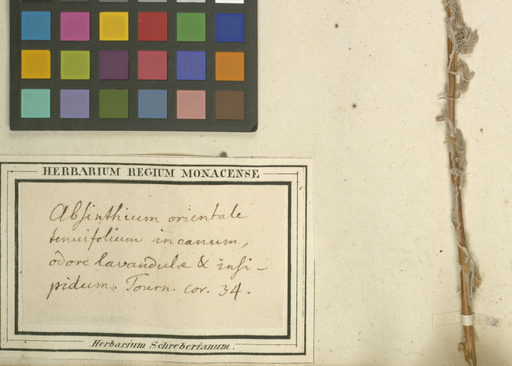 HERBARIUM REGIUM MONACENSE
Absinthium orientale
tenuifolium incanum,
odore Lavandulæ & insi-
pidum. Tourn. cor. 34.
Herbarium Schreberianum.